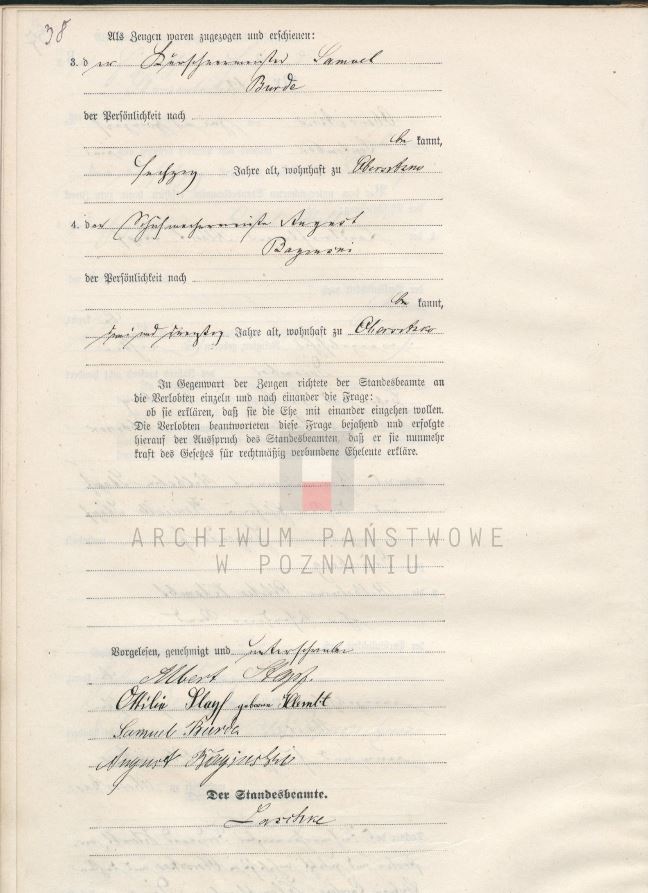 38
Als Zeugen waren zugezogen und erschienen:
3. der Kürschnermeister Samuel
Burde
der Persönlichkeit nach
be kannt,
sechzig Jahre alt, wohnhaft zu
4. der Schuhmachermeister August
der Persönlichkeit nach
be kannt,
und Jahre alt, wohnhaft zu
In Gegenwart der Zeugen richtete der Standesbeamte an
die Verlobten einzeln und nach einander die Frage:
ob sie erklären, daß sie die Ehe mit einander eingehen wollen.
Die Verlobten beantworteten diese Frage bejahend und erfolgte
hierauf der Ausspruch des Standesbeamten, daß er sie nunmehr
kraft des Gesetzes für rechtmäßig verbundene Eheleute erkläre.
ARCHIWUM PAŃSTWOWE
W POZNANIU
Vorgelesen, genehmigt und unterschrieben
Albert
Ottilie geborene Klembt
Samuel Burda
August
Der Standesbeamte.
Laschke